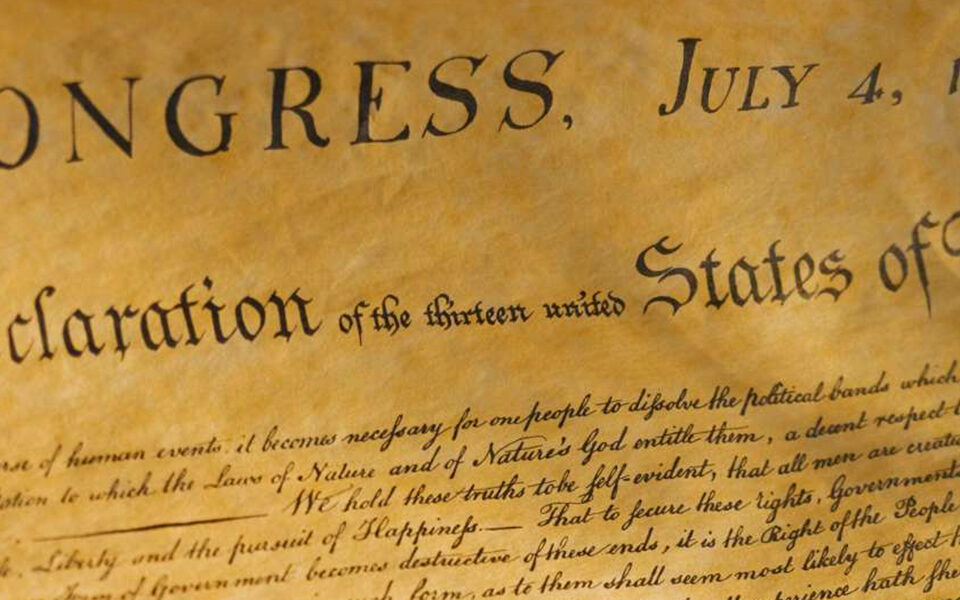 ONGRESS, JULY 4,
claration of the thirteen united States of
rse of human events, it becomes neceſsary for one people to diſsolve the political bands which
ation to which the Laws of Nature and of Nature's God entitle them, a decent respect t
We hold these truths to be ſelf-evident, that all men are creat
Liberty and the pursuit of Happineſs.— That to ſecure these rights, Governments
Form of Government becomes destructive of these ends, it is the Right of the People
form, as to them shall seem most likely to effect
perience hath ſhe